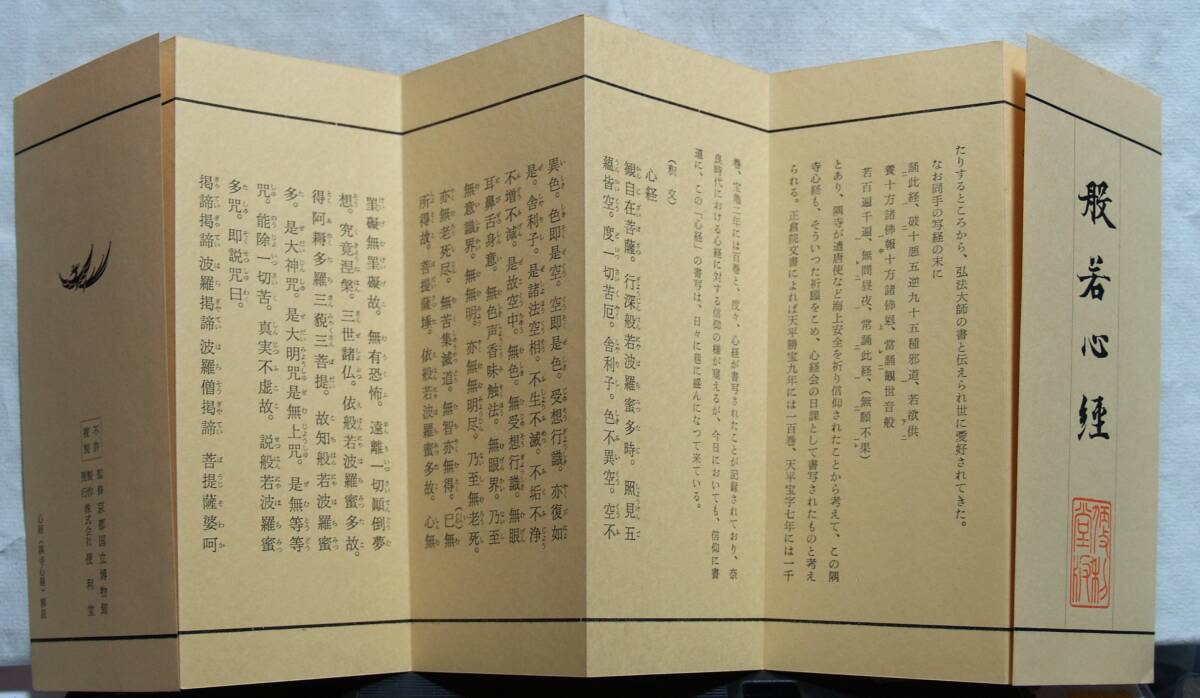 般若心経
便利堂版
たりするところから、弘法大師の書と伝えられ世に愛好されてきた。
なお同手の写経の末に
誦此経、破十悪五逆九十五種邪道、若欲供
養十方諸佛報十方諸佛恩、當誦観世音般
若百遍千遍、無間昼夜、常誦此経、(無願不果)
とあり、隅寺が遣唐使など海上安全を祈り信仰されたことから考えて、この隅
寺心経も、そういった祈願をこめ、心経会の日課として書写されたものと考え
られる。正倉院文書によれば天平勝宝九年には一百巻、天平宝字七年には一千
巻、宝亀二年には百巻と、度々、心経が書写されたことが記録されており、奈
良時代における心経に対する信仰の様が窺えるが、今日においても、信仰に書
道に、この「心経」の書写は、日々に巷に盛んになつて来ている。
(釈文)
心経
観自在菩薩。行深般若波羅蜜多時。照見五
蘊皆空。度一切苦厄。舎利子。色不異空。空不
異色。色即是空。空即是色。受想行識。亦復如
是。舎利子。是諸法空相。不生不滅。不垢不浄
不増不減。是故空中。無色。無受想行識。無眼
耳鼻舌身意。無色声香味触法。無眼界。乃至
無意識界。無無明。亦無無明尽。乃至無老死。
亦無老死尽。無苦集滅道。無智亦無得。已無
所得故。菩提薩埵。依般若波羅蜜多故。心無
罣礙無罣礙故。無有恐怖。遠離一切顚倒夢
想。究竟涅槃。三世諸仏。依般若波羅蜜多故。
得阿耨多羅三藐三菩提。故知般若波羅蜜
多。是大神咒。是大明咒是無上咒。是無等等
咒。能除一切苦。真実不虚故。説般若波羅蜜
多咒。即説咒曰。
掲諦掲諦 波羅掲諦 波羅僧掲諦 菩提薩婆呵
不許複製
監修 京都国立博物館
製作発行 株式会社 便利堂
心経(隅寺心経)解説